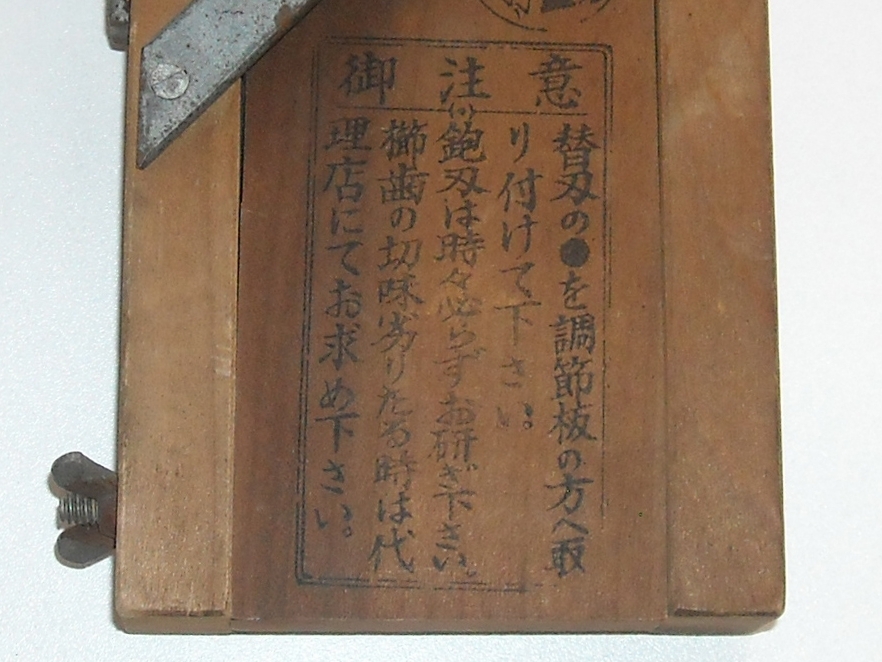 御注意
替刃の●を調節板の方へ取
り付けて下さい。
鉋刃は時々必らずお研ぎ下さい。
櫛歯の切味劣りたる時は代
理店にてお求め下さい。